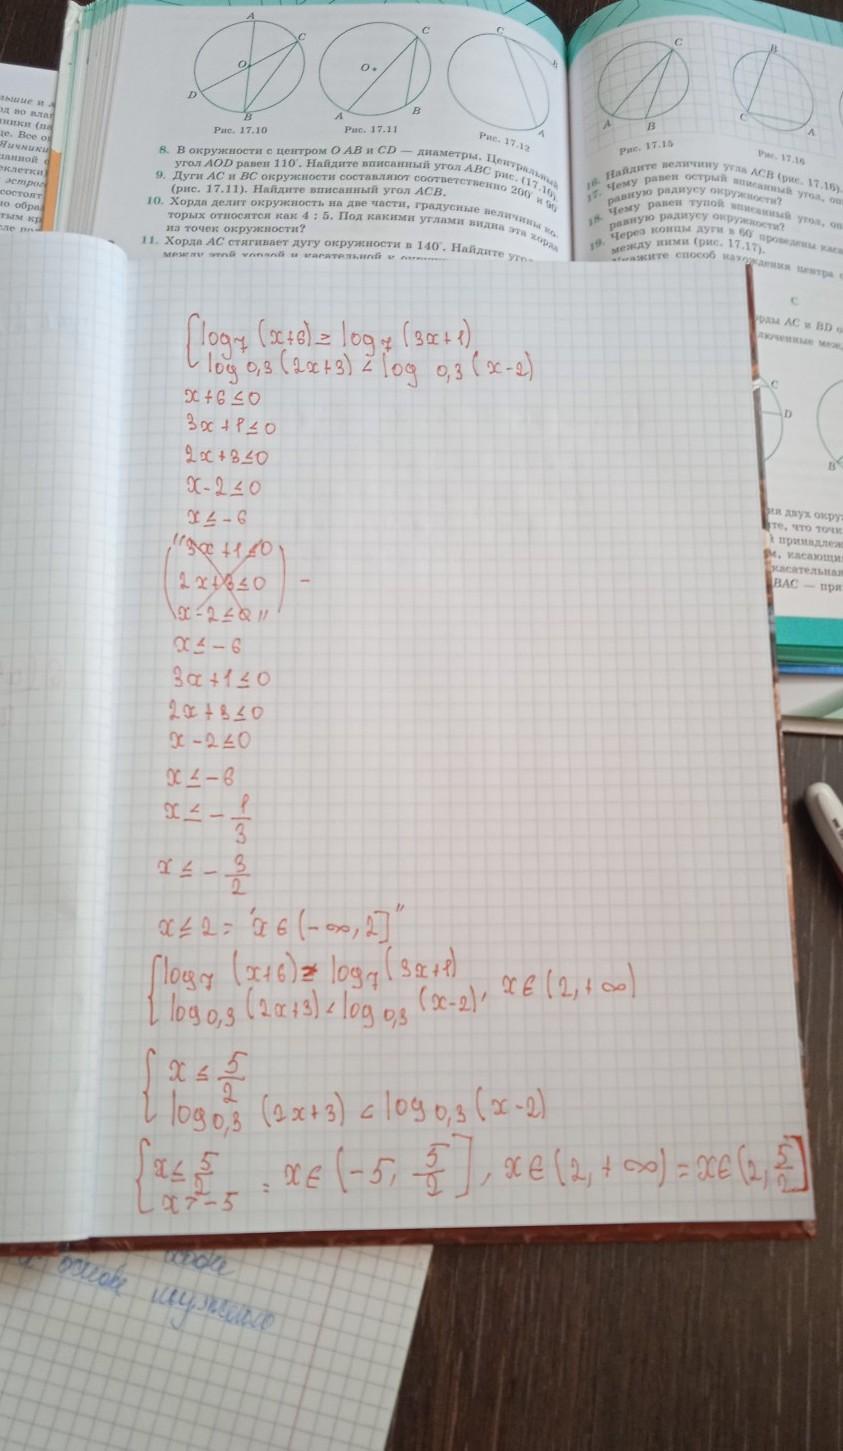 A
C
O
D
B
Рис. 17.10
C
O
A
B
Рис. 17.11
C
B
A
Рис. 17.12
C
A
B
Рис. 17.15
B
C
A
Рис. 17.16
8. В окружности с центром O AB и CD — диаметры. Центральный
угол AOD равен 110°. Найдите вписанный угол ABC рис. (17.10).
9. Дуги AC и BC окружности составляют соответственно 200° и 90°
(рис. 17.11). Найдите вписанный угол ACB.
10. Хорда делит окружность на две части, градусные величины ко-
торых относятся как 4 : 5. Под какими углами видна эта хорда
из точек окружности?
11. Хорда AC стягивает дугу окружности в 140°. Найдите
между этой хордой и касательной к
16. Найдите величину угла ACB (рис. 17.16).
17. Чему равен острый вписанный угол,
равную радиусу окружности?
18. Чему равен тупой вписанный угол,
равную радиусу окружности?
19. Через концы дуги в 60° проведены
между ними (рис. 17.17).
способ нахождения центра
C
AC и BD
C
D
B
двух
что точк
принадлеж
касающи
касательная
BAC — пря
log₇ (x+6) ≥ log₇ (3x+1)
log 0,3 (2x+3) < log 0,3 (x-2)
x+6 ≤ 0
3x+1 ≤ 0
2x+3 ≤ 0
x-2 ≤ 0
x ≤ -6
"3x+1 ≤ 0
2x+3 ≤ 0 -
x-2 ≤ 0"
x ≤ -6
3x+1 ≤ 0
2x+3 ≤ 0
x-2 ≤ 0
x ≤ -6
x ≤ - 1/3
x ≤ - 3/2
x ≤ 2 = "x ∈ (-∞, 2]"
log₇ (x+6) ≥ log₇ (3x+1)
log₀,₃ (2x+3) < log₀,₃ (x-2), x ∈ (2, +∞)
x ≤ 5/2
log₀,₃ (2x+3) < log₀,₃ (x-2)
x ≤ 5/2
x > -5 = x ∈ (-5, 5/2], x ∈ (2, +∞) = x ∈ (2, 5/2]
основе